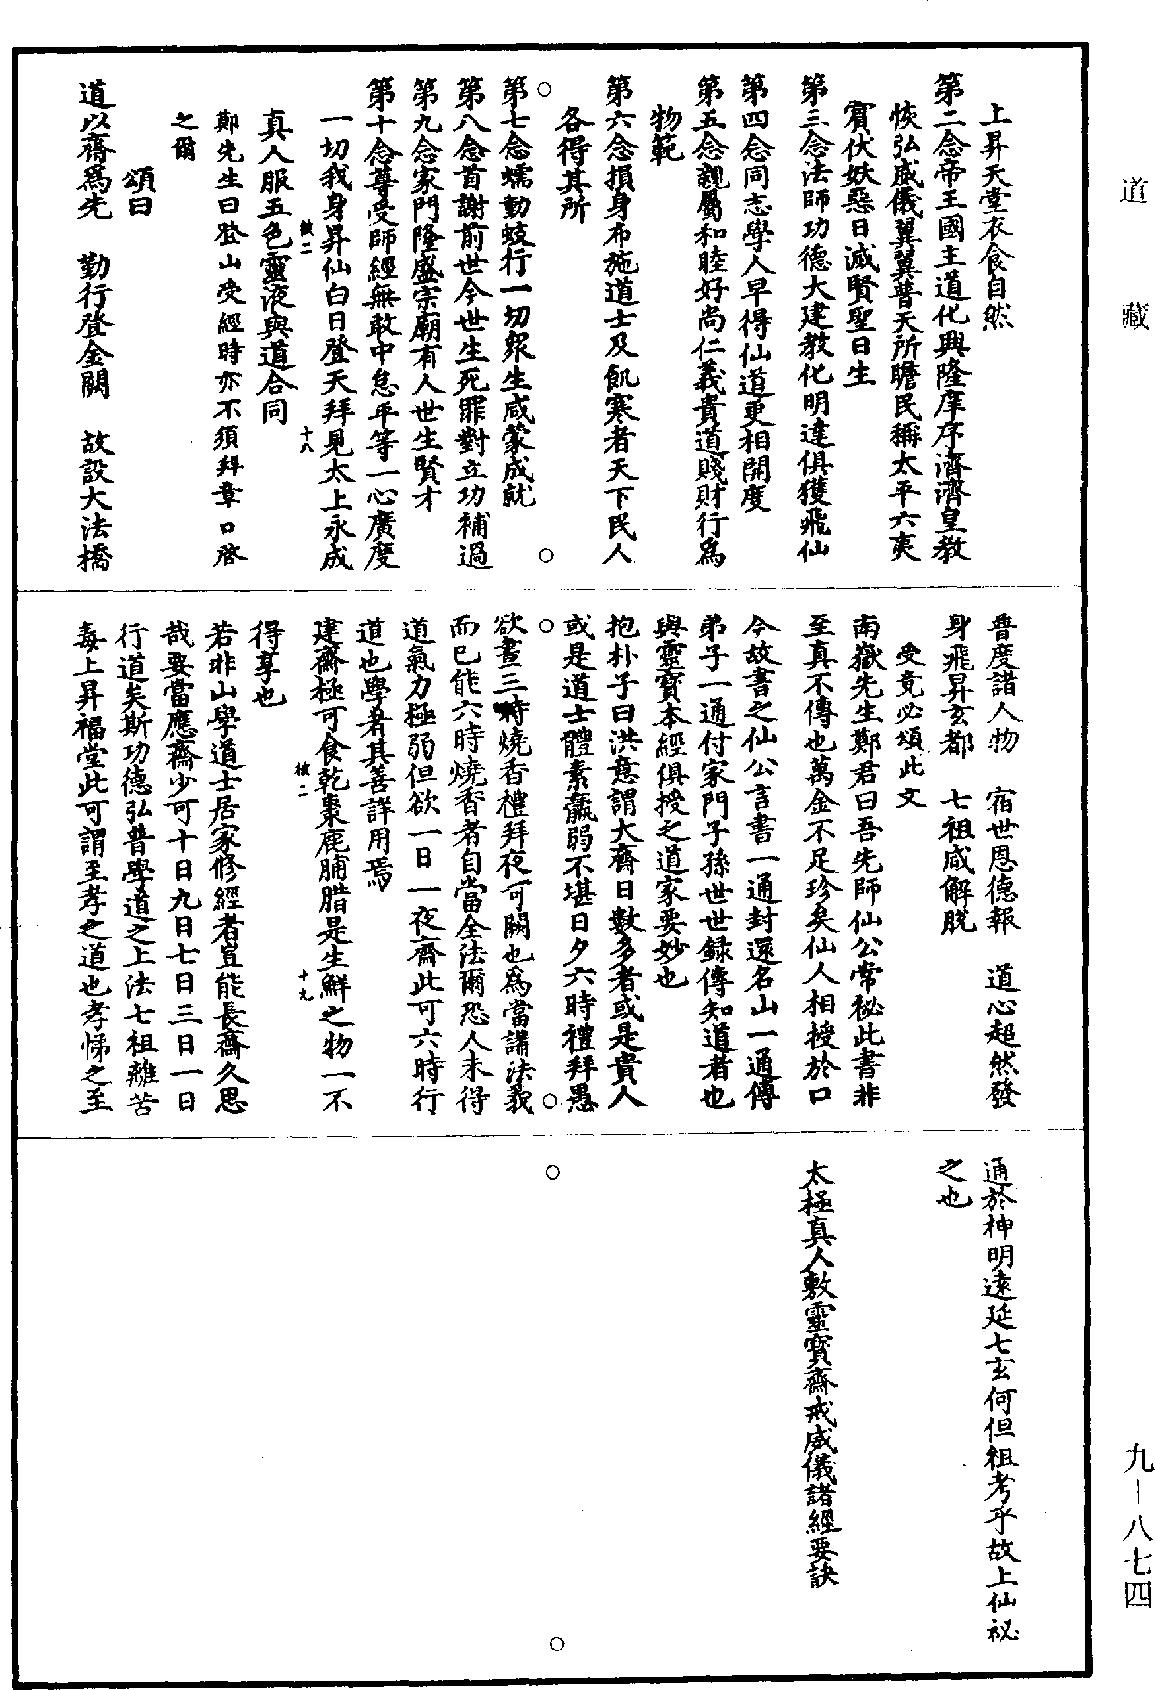 道藏
上昇天堂衣食自然
第二念帝王國主道化興隆庠序濟濟皇教
恢弘威儀翼翼普天所瞻民稱太平六夷
賓伏妖惡日滅賢聖日生
第三念法師功德大建教化明達俱獲飛仙
第四念同志學人早得仙道更相開度
第五念親屬和睦好尚仁義貴道賤財行為
物範
第六念損身布施道士及飢寒者天下民人
各得其所
第七念蠕動蚑行一切衆生咸蒙成就
第八念首謝前世今世生死罪對立功補過
第九念家門隆盛宗廟有人世生賢才
第十念尊受師經無敢中怠平等一心廣度
一切我身昇仙白日登天拜見太上永成
十八
真人服五色靈液與道合同
鄭先生曰登山受經時亦不須拜章口啓
之爾
頌曰
道以齋爲先 勤行登金闕 故設大法橋
普度諸人物 宿世恩德報 道心超然發
身飛昇玄都 七祖咸解脫
受竟必頌此文
南嶽先生鄭君曰吾先師仙公常祕此書非
至真不傳也萬金不足珍矣仙人相授於口
今故書之仙公言書一通封還名山一通傳
弟子一通付家門子孫世世録傳知道者也
與靈寶本經俱授之道家要妙也
抱朴子曰洪意謂大齋日數多者或是貴人
或是道士體素羸弱不堪日夕六時禮拜愚
欲晝三時燒香禮拜夜可闕也爲當講法義
而已能六時燒香者自當全法爾恐人未得
道氣力極弱但欲一日一夜齋此可六時行
道也學者其善詳用焉
建齋極可食乾棗鹿脯腊是生鮮之物一不
十九
得享也
若非山學道士居家修經者豈能長齋久思
哉要當應齋少可十日九日七日三日一日
行道矣斯功德弘普學道之上法七祖離苦
毒上昇福堂此可謂至孝之道也孝悌之至
通於神明遠延七玄何但祖考乎故上仙祕
之也
太極真人敷靈寶齋戒威儀諸經要訣
九－八七四